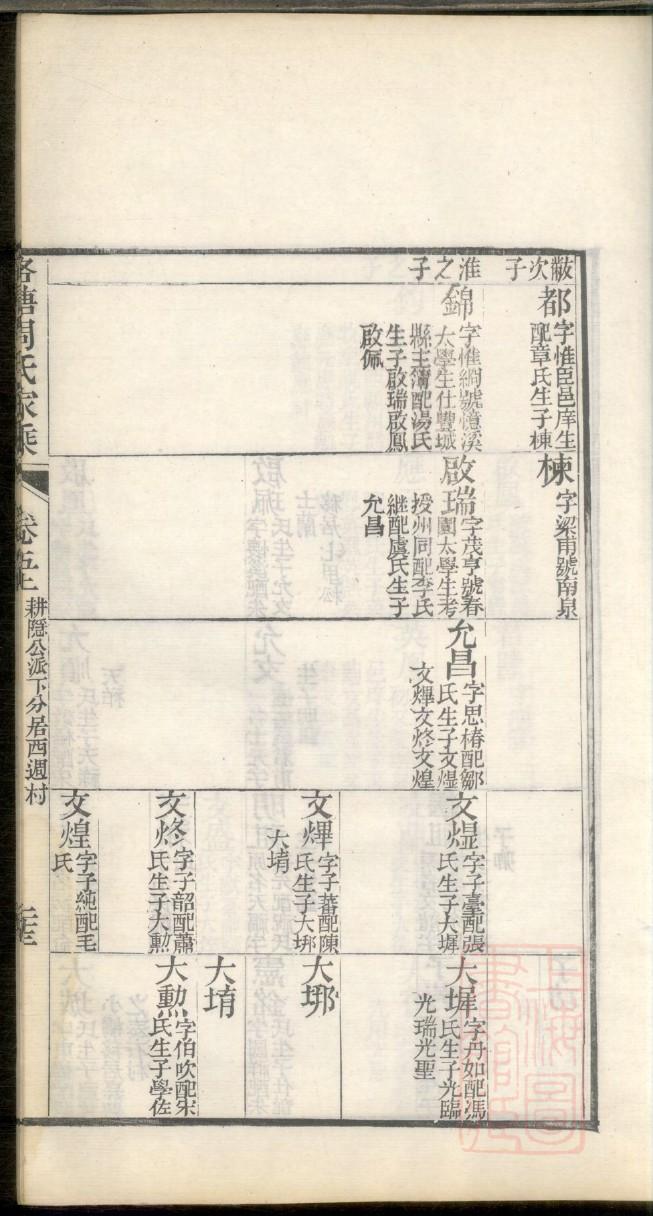 黻次子
淮之子
都
字惟臣邑庠生
配章氏生子楝
錦
字惟綱號憶溪
太學生仕豐城
縣主簿配湯氏
生子啟瑞啟鳳
啟佩
楝
字梁甫號南泉
啟瑞
字茂亨號春
園太學生考
授州同配李氏
繼配虞氏生子
允昌
允昌
字思椿配鄒
氏生子文煋
文燡文炵文煌
文煋
字子臺配張
氏生子大墀
文燡
字子蕃配陳
氏生子大垹
大堉
文炵
字子韶配蕭
氏生子大勲
文煌
字子純配毛
氏
大墀
字丹如配馮
氏生子光臨
光瑞光聖
大垹
大堉
大勲
字伯吹配宋
氏生子學佐
塘周氏家乘
卷五上
耕隱公派下分居西週村